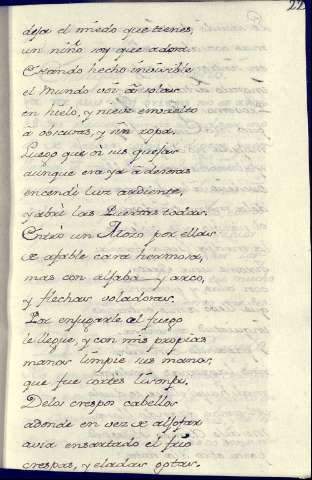 22
deja el miedo que tienes,
un niño soy que adora.
Estando hecho invisible
el Mundo voi à solas
en hielo, y nieve envuelto
à obscuras, y sin ropa.
Luego que oi sus quejas
aunque era ya à deshoras
encendi luz ardiente,
y abri las Puertas todas.
Entrò un Mozo por ellas
de afable cara hermosa,
mas con alfaba y arco,
y flechas voladoras.
Por enjugarle al fuego
le lleguè, y con mis propias
manos limpie sus manos,
que fue cortes lisonja.
Delos crespos cabellos
adonde en vez de alfojar
avia ensartado el frio
crespas, y eladas gotas.